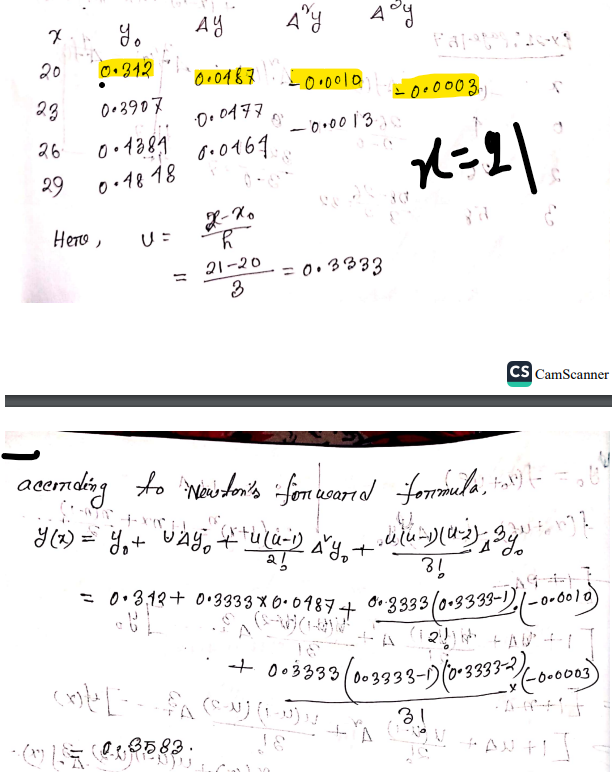 x y₀ Δy Δ²y Δ³y
20 0.342 0.0487 -0.0010 -0.0003
23 0.3907 0.0477 -0.0013
26 0.4384 0.0464
29 0.4848
x=21
Here, U = x-x₀/h
= 21-20/3 = 0.3333
CS CamScanner
according to Newton's forward formula,
y(x) = y₀ + UΔy₀ + u(u-1)/2! Δ²y₀ + u(u-1)(u-2)/3! Δ³y₀
= 0.342 + 0.3333×0.0487 + 0.3333(0.3333-1)/2! (-0.0010)
+ 0.3333(0.3333-1)(0.3333-2)/3! × (-0.0003)
= 0.3583.